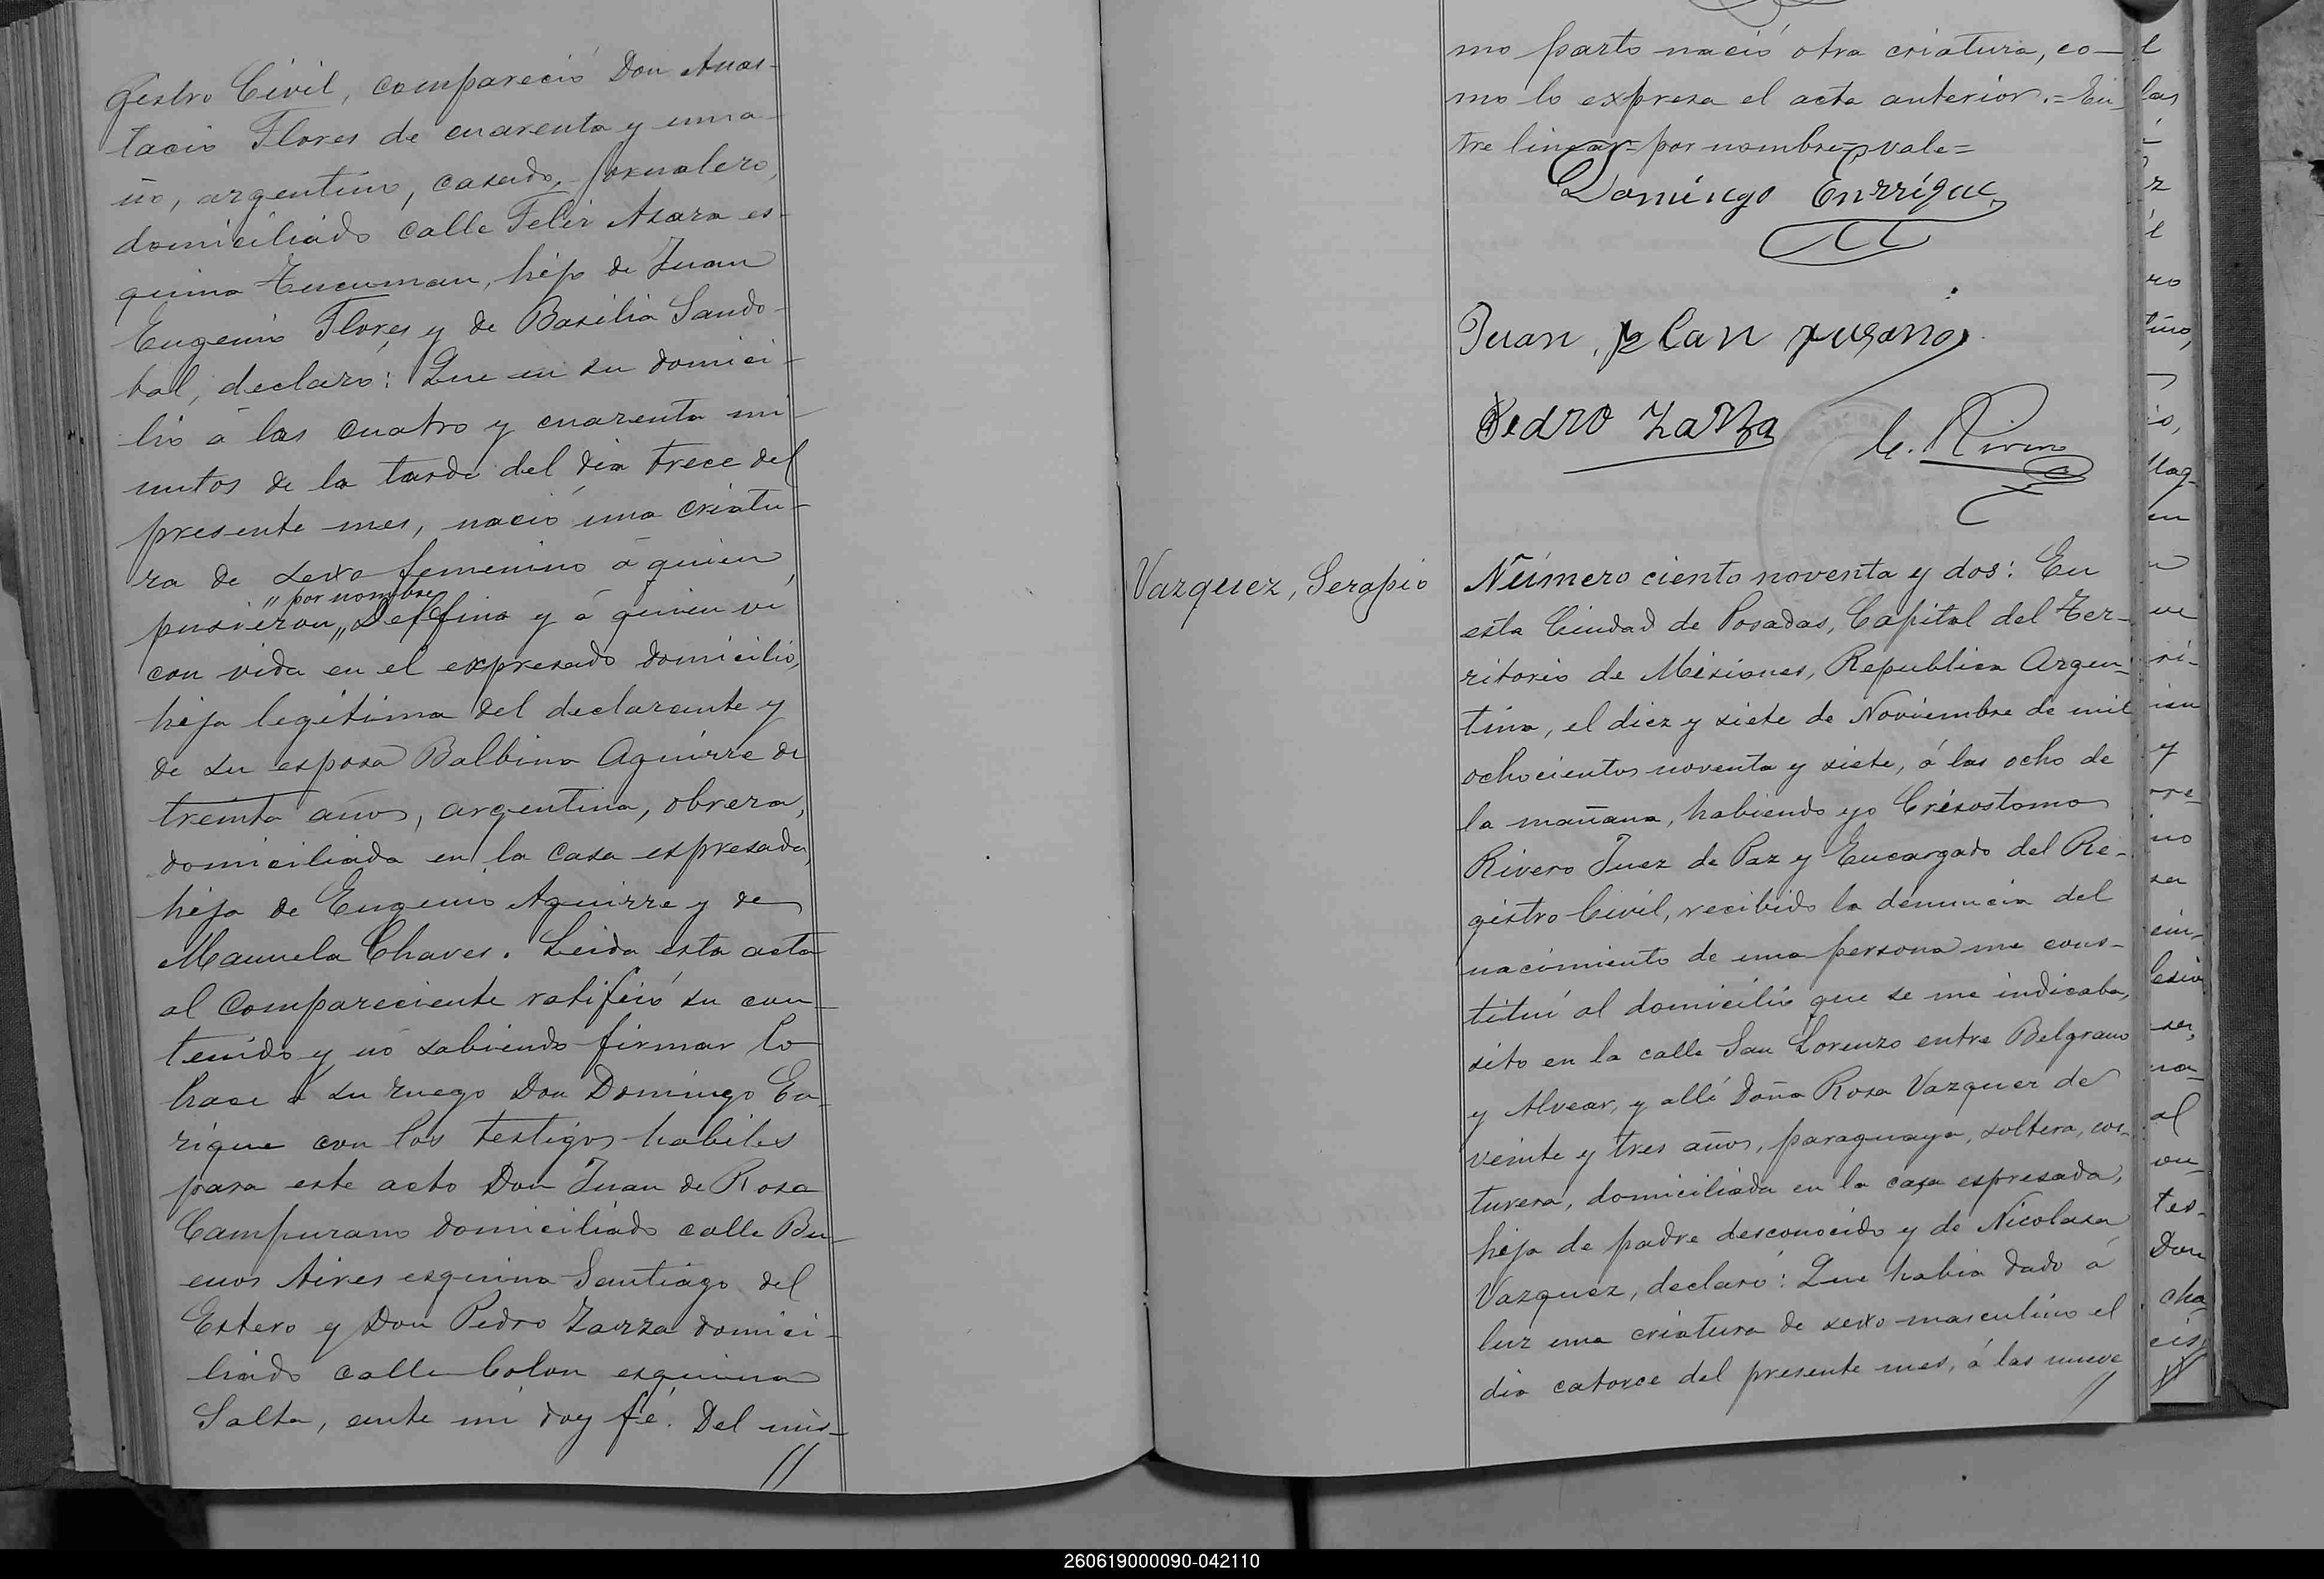 gistro Civil, compareció Don Anas-
tacio Flores de cuarenta y un a-
ño, argentino, casado, jornalero,
domiciliado calle Felix Azara es-
quina Tucuman, hijo de Juan
Eugenio Flores y de Basilia Sando-
bal, declaró: Que en su domici-
lio á las cuatro y cuarenta mi-
nutos de la tarde del dia trece del
presente mes, nació una criatu-
ra de sexo femenino á quien
" por nombre
pusieron " Delfina y á quien ví
con vida en el expresado domicilio,
hija legítima del declarante y
de su esposa Balbina Aguirre de
treinta años, argentina, obrera,
domiciliada en la casa espresada,
hija de Eugenio Aguirre y de
Manuela Chaves. Leida esta acta
al compareciente ratificó su con-
tenido y no sabiendo firmar lo
hace á su ruego Don Domingo En-
rique con los testigos habiles
para este acto Don Juan de Rosa
Campurano domiciliado calle Bu-
enos Aires esquina Santiago del
Estero y Don Pedro Zarza domici-
liado calle Colon esquina
Salta, ante mi doy fé. Del mis-
//
mo parto nació otra criatura, co-
mo lo expresa el acta anterior.= En-
tre lineas= por nombre= vale=
Domingo Enrrique
Juan
Pedro Zarza
C. Rivero
Vazquez, Serapio
Número ciento noventa y dos: En
esta Ciudad de Posadas, Capital del Ter-
ritorio de Misiones, Republica Argen-
tina, el diez y siete de Noviembre de mil
ochocientos noventa y siete, á las ocho de
la mañana, habiendo yo Crisostomo
Rivero Juez de Paz y Encargado del Re-
gistro Civil, recibido la denuncia del
nacimiento de una persona me cons-
tituí al domicilio que se me indicaba,
sito en la calle San Lorenzo entre Belgrano
y Alvear, y allí Doña Rosa Vazquez de
veinte y tres años, paraguaya, soltera, cos-
turera, domiciliada en la casa espresada,
hija de padre desconocido y de Nicolasa
Vazquez, declaró: Que habia dado á
luz una criatura de sexo masculino el
dia catorce del presente mes, á las nueve
//
260619000090-042110